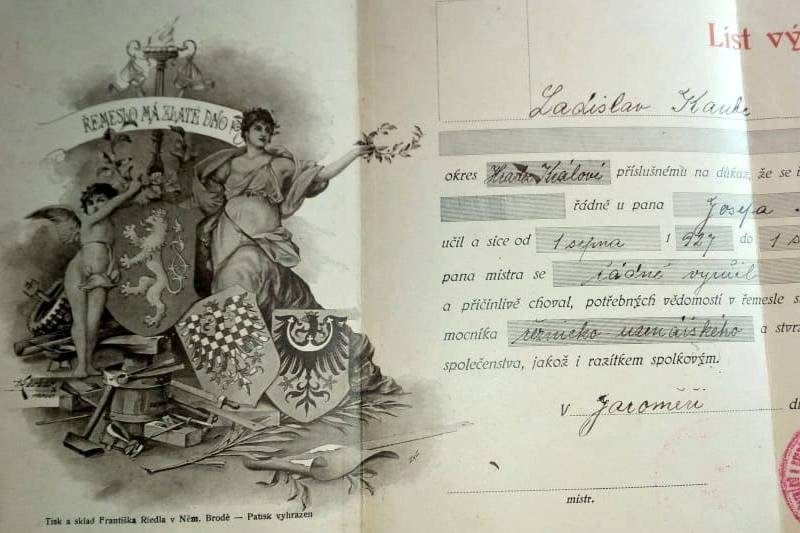 ŘEMESLO MÁ ZLATÉ DNO
Tisk a sklad Františka Riedla v Něm. Brodě — Patisk vyhrazen
List vý
Ladislav
okres Hradec Králové příslušnému na důkaz, že se
řádně u pana Josefa
učil a sice od 1 srpna 1927 do 1 s
pana mistra se řádně vyučil
a přičinlivě choval, potřebných vědomostí v řemesle
mocníka řeznicko uzenářského a stvr
společenstva, jakož i razítkem spolkovým.
V Jaroměři d
mistr.